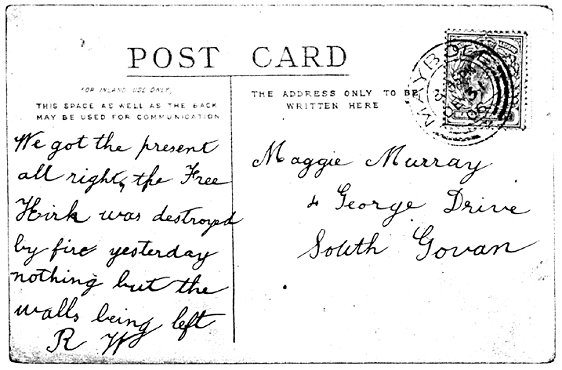 POST CARD
FOR INLAND USE ONLY.
THIS SPACE AS WELL AS THE BACK
MAY BE USED FOR COMMUNICATION
THE ADDRESS ONLY TO BE
WRITTEN HERE
MAYBOLE
DE 31
We got the present
all right, the Free
Kirk was destroyed
by fire yesterday
nothing but the
walls being left
R W
Maggie Murray
4 George Drive
South Govan